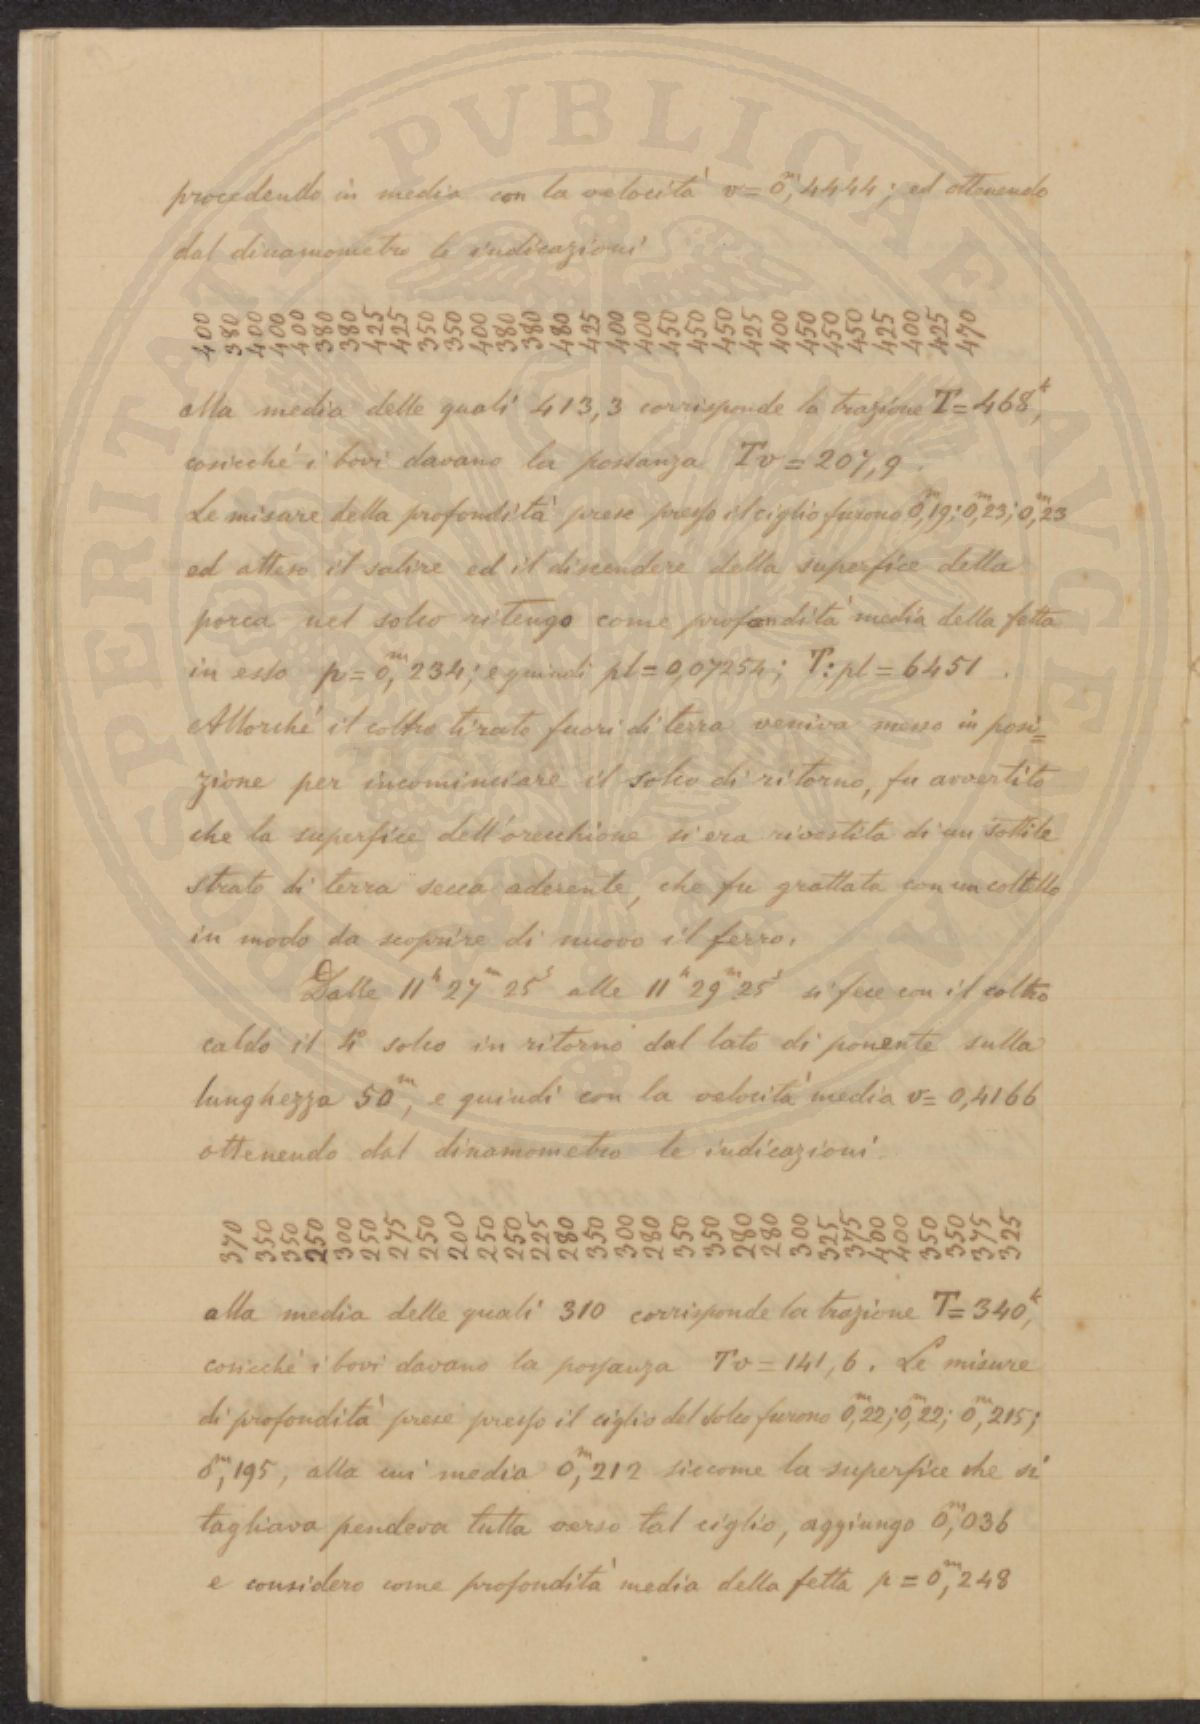 procedendo in media con la velocità v = 0,ᵐ4444; ed ottenendo
dal dinamometro le indicazioni
400 380 400 400 400 380 380 425 425 350 350 400 380 380 480 425 400 400 450 450 450 425 400 450 450 450 425 400 425 470
alla media delle quali 413,3 corrisponde la trazione T = 468,ᵏ
cosicchè i bovi davano la possanza Tv = 207,9.
Le misure della profondità prese presso il ciglio furono 0,ᵐ19; 0,ᵐ23; 0,ᵐ23
ed atteso il salire ed il discendere della superfice della
porca nel solco ritengo come profondità media della fetta
in esso p = 0,ᵐ234; e quindi pl = 0,07254; T:pl = 6451.
Allorchè il coltro tirato fuori di terra veniva messo in posi=
zione per incominciare il solco di ritorno, fu avvertito
che la superfice dell'orecchione si era rivestita di un sottile
strato di terra secca aderente, che fu grattata con un coltello
in modo da scoprire di nuovo il ferro.
Dalle 11ʰ 27ᵐ 25ˢ alle 11ʰ 29ᵐ 25ˢ si fece con il coltro
caldo il 4° solco in ritorno dal lato di ponente sulla
lunghezza 50ᵐ, e quindi con la velocità media v = 0,4166
ottenendo dal dinamometro le indicazioni.
370 350 350 250 300 250 275 250 200 250 250 225 280 350 300 280 350 350 280 280 300 325 375 400 400 350 350 375 325
alla media delle quali 310 corrisponde la trazione T = 340,ᵏ
cosicchè i bovi davano la possanza Tv = 141,6. Le misure
di profondità prese presso il ciglio del solco furono 0,ᵐ22; 0,ᵐ22; 0,ᵐ215;
0,ᵐ195, alla cui media 0,ᵐ212 siccome la superfice che si
tagliava pendeva tutta verso tal ciglio, aggiungo 0,ᵐ036
e considero come profondità media della fetta p = 0,ᵐ248
PROSPERITATI PVBLICAE AVGENDAE